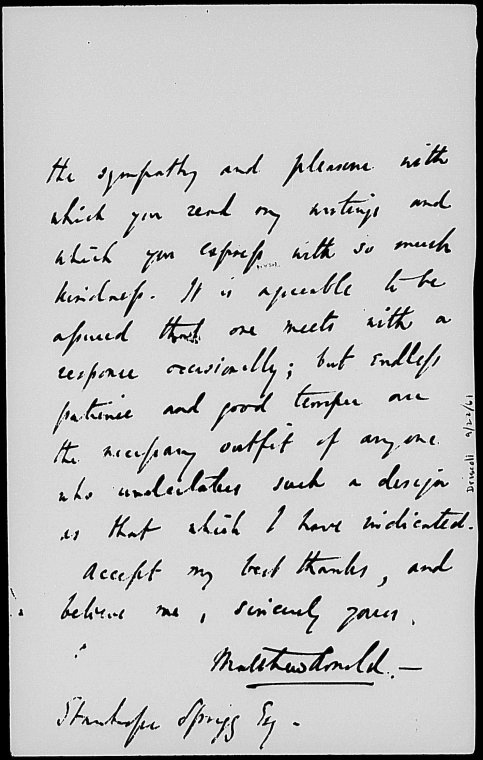 the sympathy and pleasure with
which you read my writings and
which you express with so much
kindness. It is agreeable to be
assured that one meets with a
response occasionally; but endless
patience and good temper are
the necessary outfit of anyone
who undertakes such a design
as that which I have indicated.
Accept my best thanks, and
believe me, sincerely yours,
Matthew Arnold.—
Stanhope Sprigg Esq -
Driscoll 9/22/61